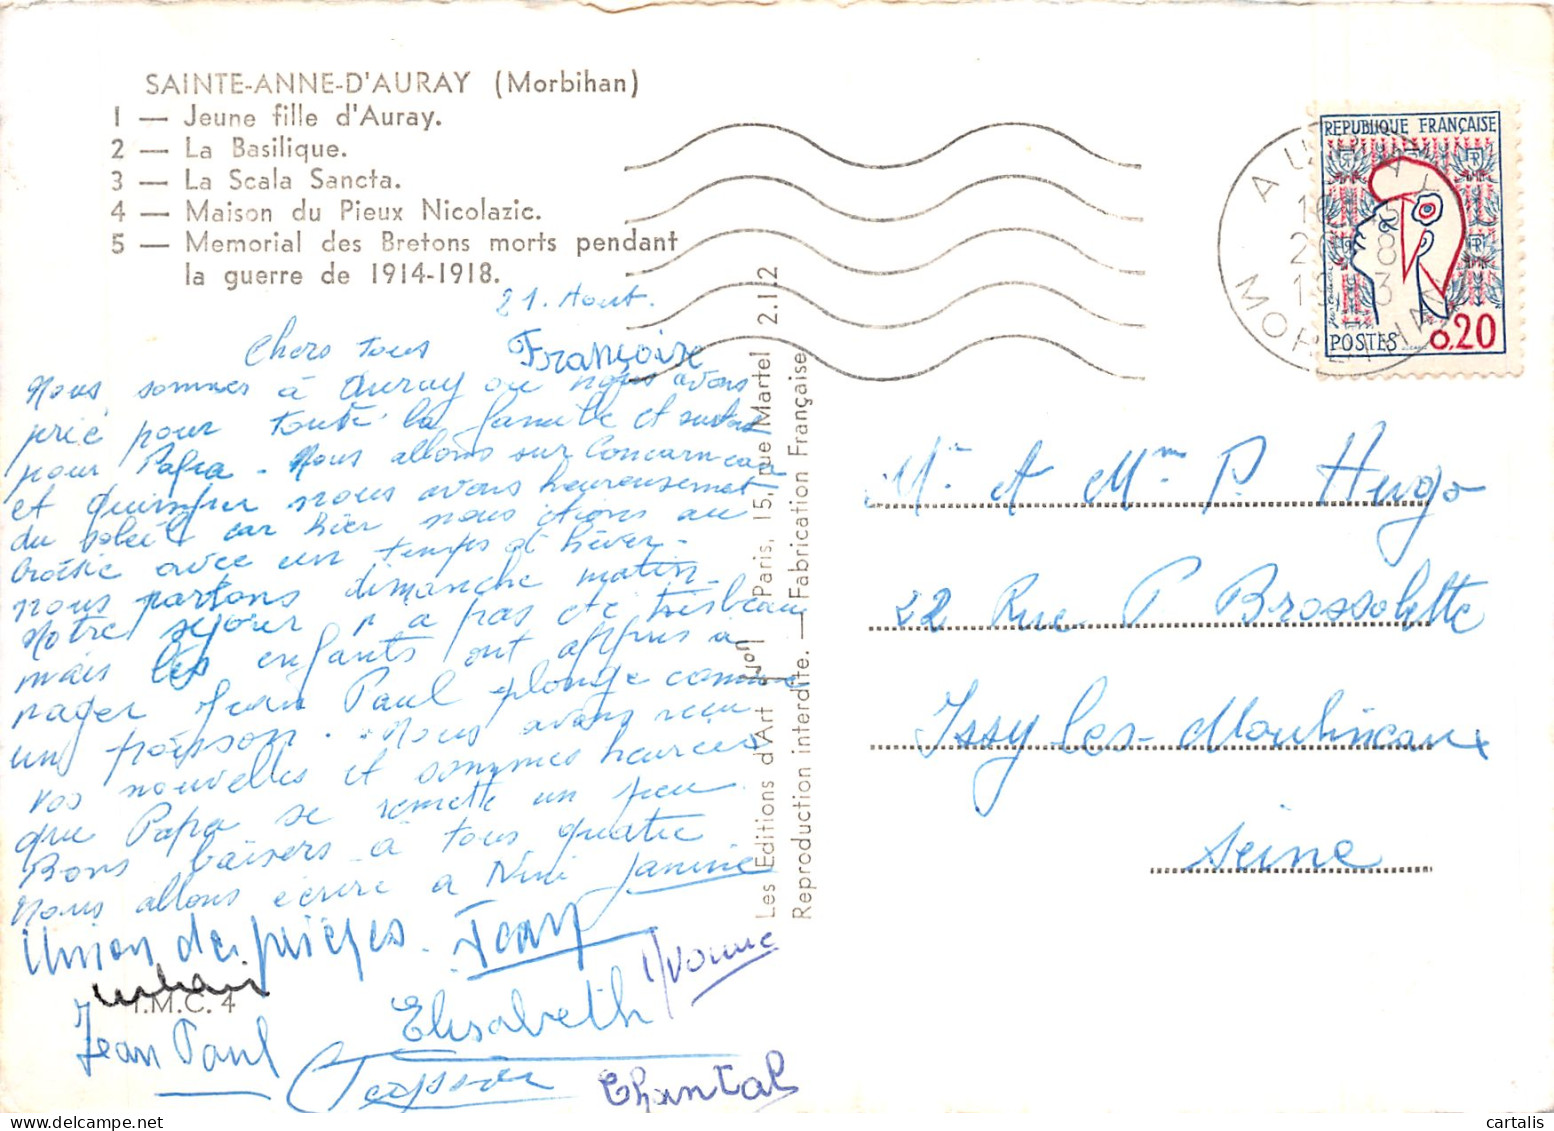 SAINTE-ANNE-D'AURAY (Morbihan)
1 — Jeune fille d'Auray.
2 — La Basilique.
3 — La Scala Sancta.
4 — Maison du Pieux Nicolazic.
5 — Memorial des Bretons morts pendant
la guerre de 1914-1918.
21. Aout.
Chers tous Françoise
Nous sommes à Auray ou nous avons
prié pour toute la famille et surtout
pour Papa - Nous allons sur Concarneau
et Quimper nous avons heureusement
du soleil car hier nous étions au
avec un temps d'hiver -
nous partons dimanche matin -
Notre séjour n'a pas été très beau
mais les enfants ont appris à
nager Jean Paul plonge comme
un poisson. Nous avons reçu
vos nouvelles et sommes heureux
que Papa se remette un peu.
Bons baisers à tous quatre
Nous allons écrire à Nini Janine
Union de prières. Jean
Yvonne
I.M.C. 4
Jean Paul
Elisabeth
Chantal
Les Editions d'Art Yvon Paris, 15, rue Martel 2.1.2
Reproduction interdite. — Fabrication Française
REPUBLIQUE FRANÇAISE
POSTES 0,20
AURAY
MORBIHAN
Mr et Mme P. Hugo
22 Rue P. Brossolette
Issy les-Moulineaux
Seine
cartalis